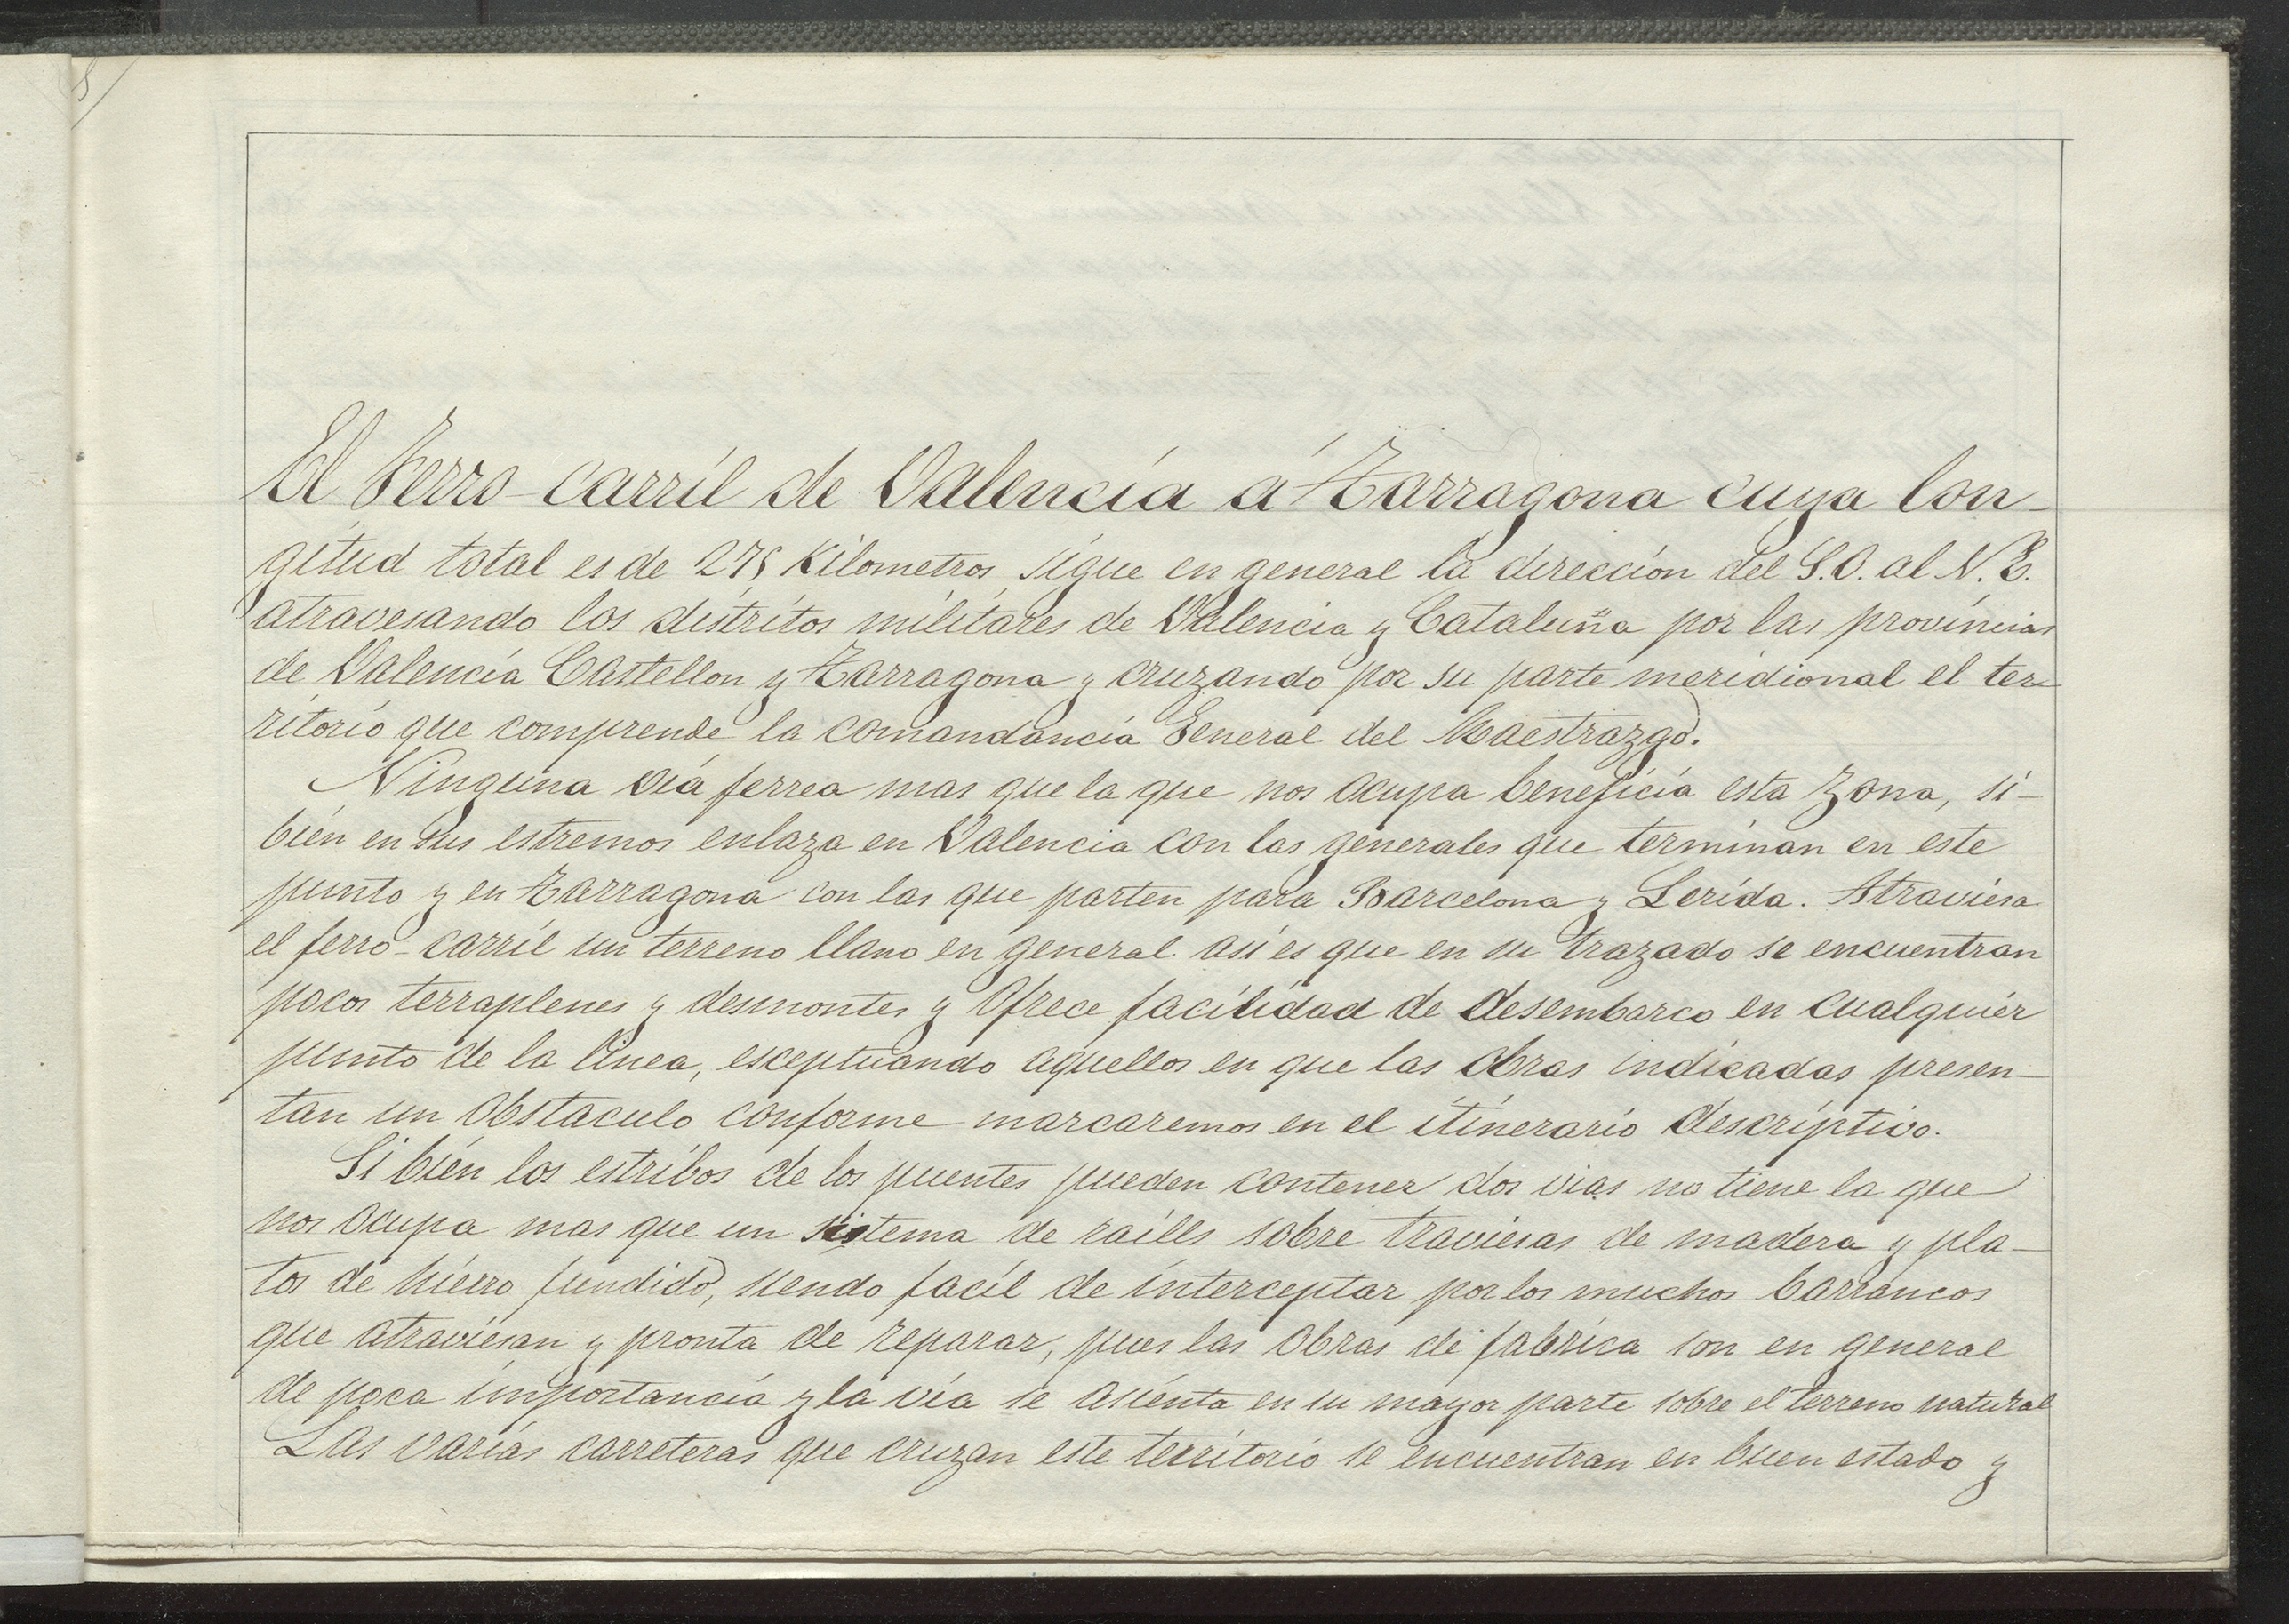 El Ferro-carril de Valencia á Tarragona cuya lon-
gitud total es de 275 Kilometros, sigue en general la dirección del S.O. al N.E.
atravesando los distritos militares de Valencia y Cataluña por las provincias
de Valencia Castellon y Tarragona y cruzando por su parte meridional el ter-
ritorio que comprende la comandancia General del Maestrazgo.
Ninguna via ferrea mas que la que nos ocupa beneficia esta zona, si-
bien en sus estremos enlaza en Valencia con las generales que terminan en este
punto y en Tarragona con las que parten para Barcelona y Lerida. Atraviesa
el ferro-carril un terreno llano en general asi es que en su trazado se encuentran
pocos terraplenes y desmontes y ofrece facilidad de desembarco en cualquier
punto de la linea, esceptuando aquellos en que las obras indicadas presen-
tan un obstaculo conforme marcaremos en el itinerario descriptivo.
Si bien los estribos de los puentes pueden contener dos vias no tiene la que
nos ocupa mas que un sistema de raills sobre traviesas de madera y pla-
tos de hierro fundido, siendo facil de interceptar por los muchos barrancos
que atraviesan y pronta de reparar, pues las obras de fabrica son en general
de poca importancia y la via se asienta en su mayor parte sobre el terreno natural
Las varias carreteras que cruzan este territorio se encuentran en buen estado y